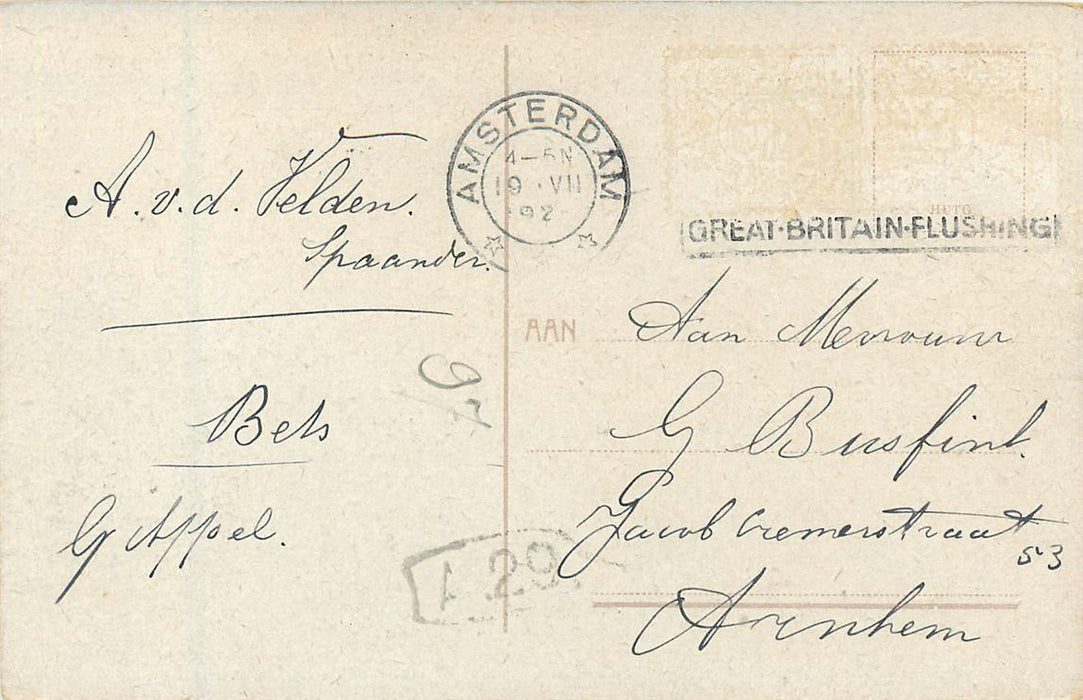 A. v. d. Velden.
Spaander.
Bets
G Appel.
AMSTERDAM
4–5N
19 · VII
192
GREAT·BRITAIN·FLUSHING
AAN
Aan Mevrouw
G Busfint.
Jacob Cremerstraat
53
Arnhem
A 29